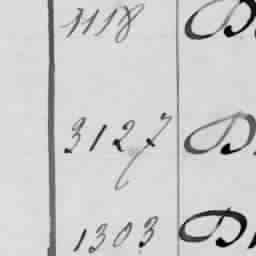 1118 D
3127 D
1303 D